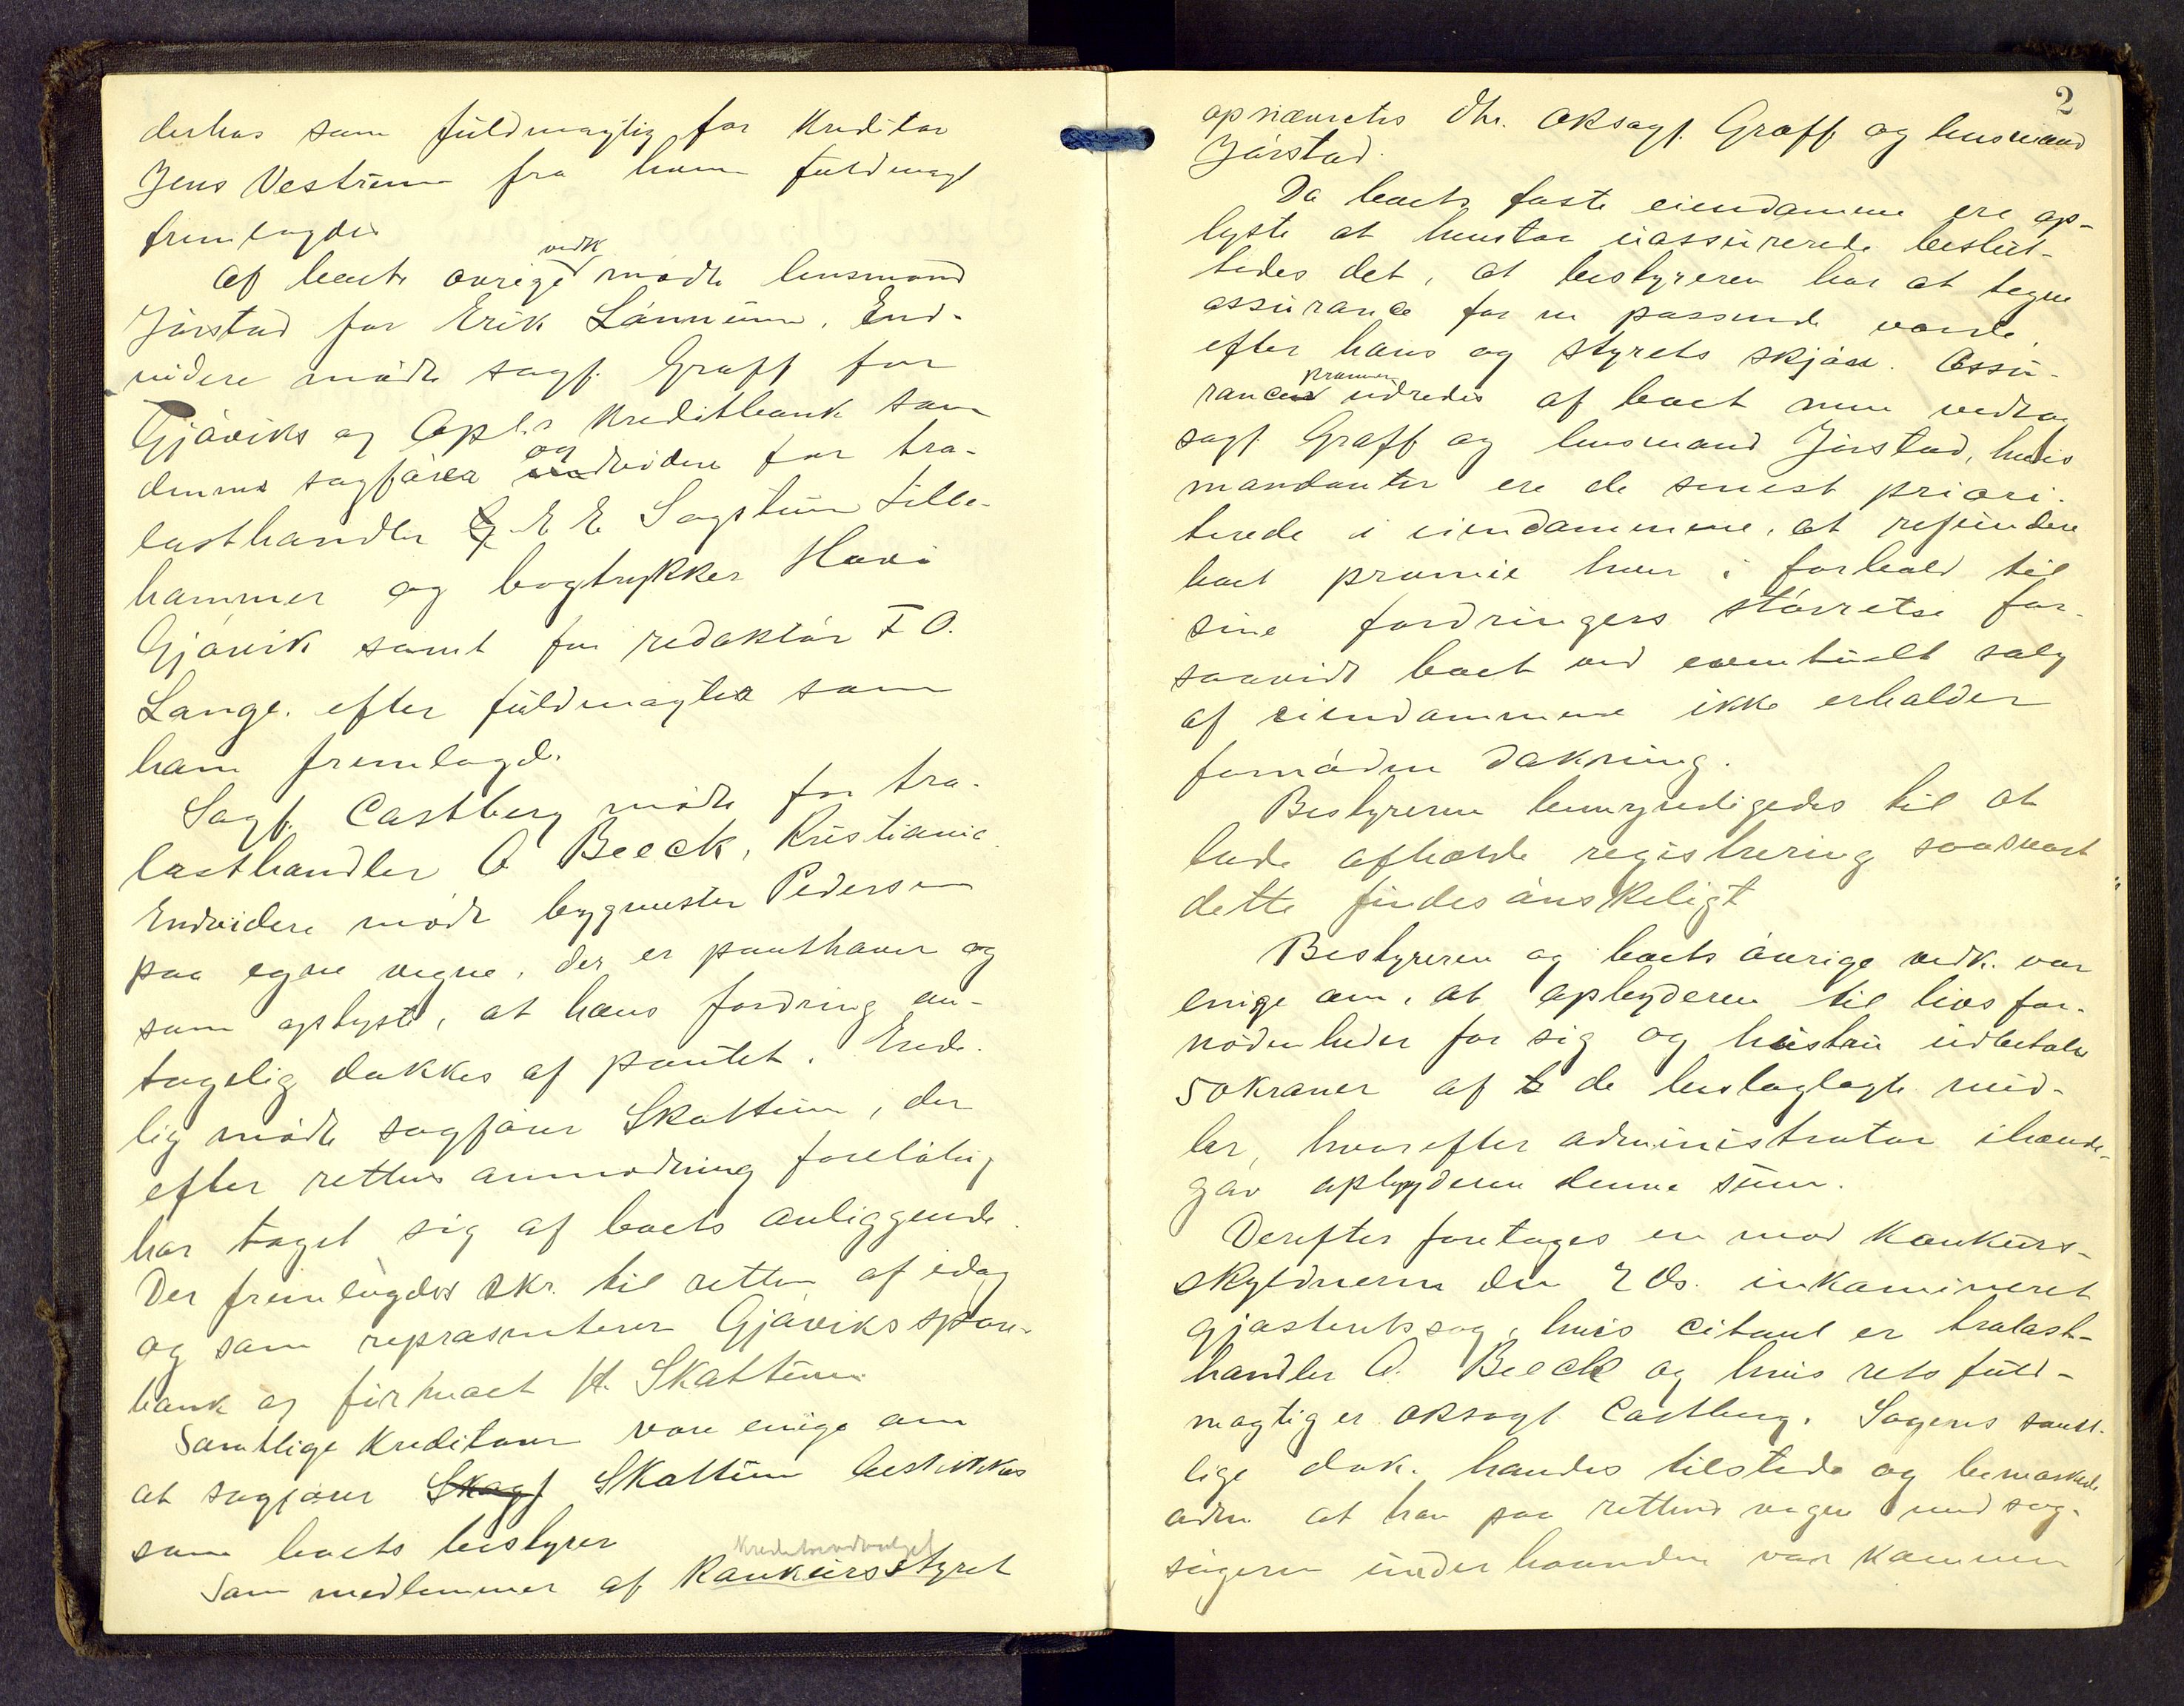 derhos som fuldmægtig for Kreditor
Jens Vestrum fra ham fuldmagt
fremlagdes
Af boets øvrige vedk mødte lensmand
Jørstad for Erik Lønnum. End-
videre mødte sagf. Graff for
Gjøviks og Opl.s Kreditbank som
dennes sagfører og videre for tra-
lasthandler E E Sagstuen Lille-
hammer og bogtrykker Hovi
Gjøvik samt for redaktør F O.
Lange. efter fuldmagter som
han fremlagde.
Sagf. Castberg mødte for tra-
lasthandler O Beeck, Kristiania.
Endvidere mødte bygmester Pedersen
paa egne vegne, der er panthaver og
som oplyste, at hans fordring an-
tagelig dækkes af pantet. Ende-
lig mødte sagfører Skattum, der
efter rettens anmodning foreløbig
har taget sig af boets anliggende.
Der fremlagdes skr. til retten af idag
og som repræsenterer Gjøviks spare-
bank og firmaet H. Skattum
Samtlige Kreditorer vare enige om
at sagfører Skagf Skattum beskikkes
som boets bestyrer
Kreditorudvalget
Som medlemmer af Konkursstyret
2
opnævntes Dhr. Oksagf. Graff og lensmand
Jørstad.
Da boets faste eiendomme ere op-
lyste at henstaa uassurerede beslut-
tedes det, at bestyreren har at tegne
assurance for en passende værdi,
efter hans og styrets skjøn. Assu-
rancepræmien udredes af boet men vedtog
sagf. Graff og lensmand Jørstad, hvis
mandanter ere de senest priori-
terede i eiendommene, at refundere
boet præmie hver i forhold til
sine fordringers størrelse for-
saavidt boet ved eventuelt salg
af eiendommene ikke erholder
fornøden dækning.
Bestyreren bemyndigedes til at
lade afholde registrering saasnart
dette findes ønskeligt
Bestyreren og boets øvrige vedk. var
enige om, at opbyderen til livsfor-
nødenheder for sig og hustru udbetales
50 kroner af de beslaglagte mid-
ler, hvorefter administrator ihænde-
gav opbyderen denne sum.
Derefter foretages en mod Konkurs-
skyldneren den 2 ds. inkamineret
gjæsteretssag, hvis citant er tralast-
handler O. Beeck og hvis rets fuld-
mægtig er oksagf. Castberg. Sagens samt-
lige dok. havdes tilstede og bemærkede
adm at han paa rettens vegne med sag-
søgeren underhaanden var kommen